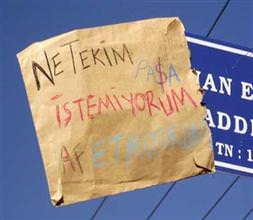 NETEKİM
PAŞA
İSTEMİYORUM
AF ETMİYORUM
AN E
ADDE
TN : 1